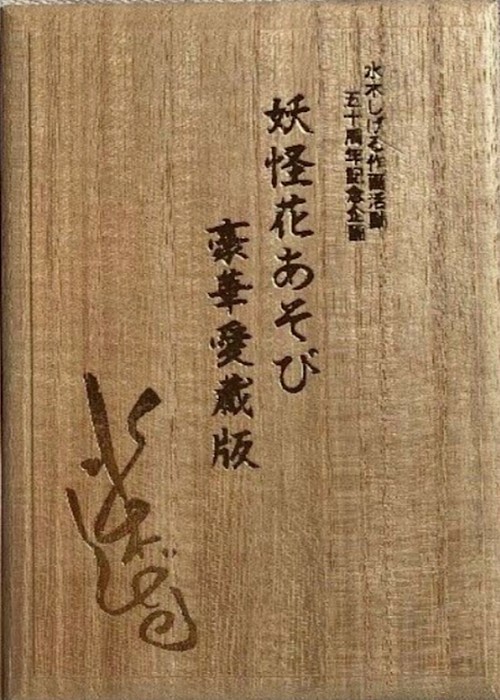 水木しげる作画活動
五十周年記念企画
妖怪花あそび
豪華愛蔵版
水木しげる